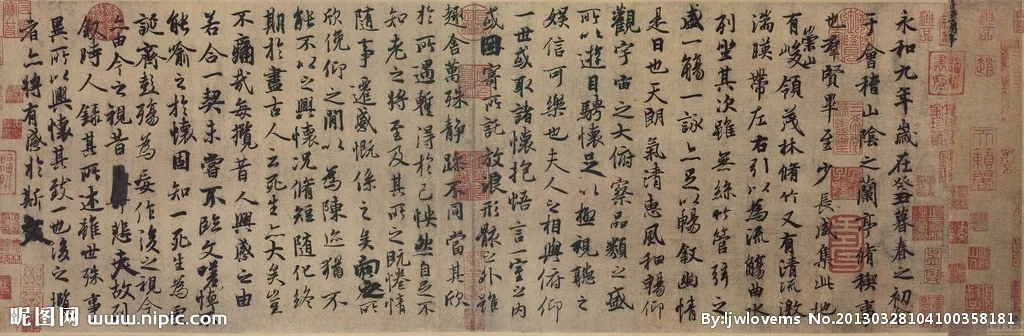 永和九年歲在癸丑暮春之初
于會稽山陰之蘭亭脩稧事
也群賢畢至少長咸集此地
有崇山峻領茂林脩竹又有清流激
湍暎帶左右引以為流觴曲水
列坐其次雖無絲竹管弦之
盛一觴一詠亦足以暢敘幽情
是日也天朗氣清惠風和暢仰
觀宇宙之大俯察品類之盛
所以遊目騁懷足以極視聽之
娛信可樂也夫人之相與俯仰
一世或取諸懷抱悟言一室之內
或因寄所託放浪形骸之外雖
趣舍萬殊靜躁不同當其欣
於所遇暫得於己怏然自足不
知老之將至及其所之既惓情
隨事遷感慨係之矣向之所
欣俛仰之間以為陳迹猶不
能不以之興懷況脩短隨化終
期於盡古人云死生亦大矣豈
不痛哉每攬昔人興感之由
若合一契未嘗不臨文嗟悼不
能喻之於懷固知一死生為虛
誕齊彭殤為妄作後之視今
亦由今之視昔悲夫故列
敘時人錄其所述雖世殊事
異所以興懷其致一也後之攬
者亦將有感於斯文
昵图网 www.nipic.com
By:ljwlovems No.20130328104100358181